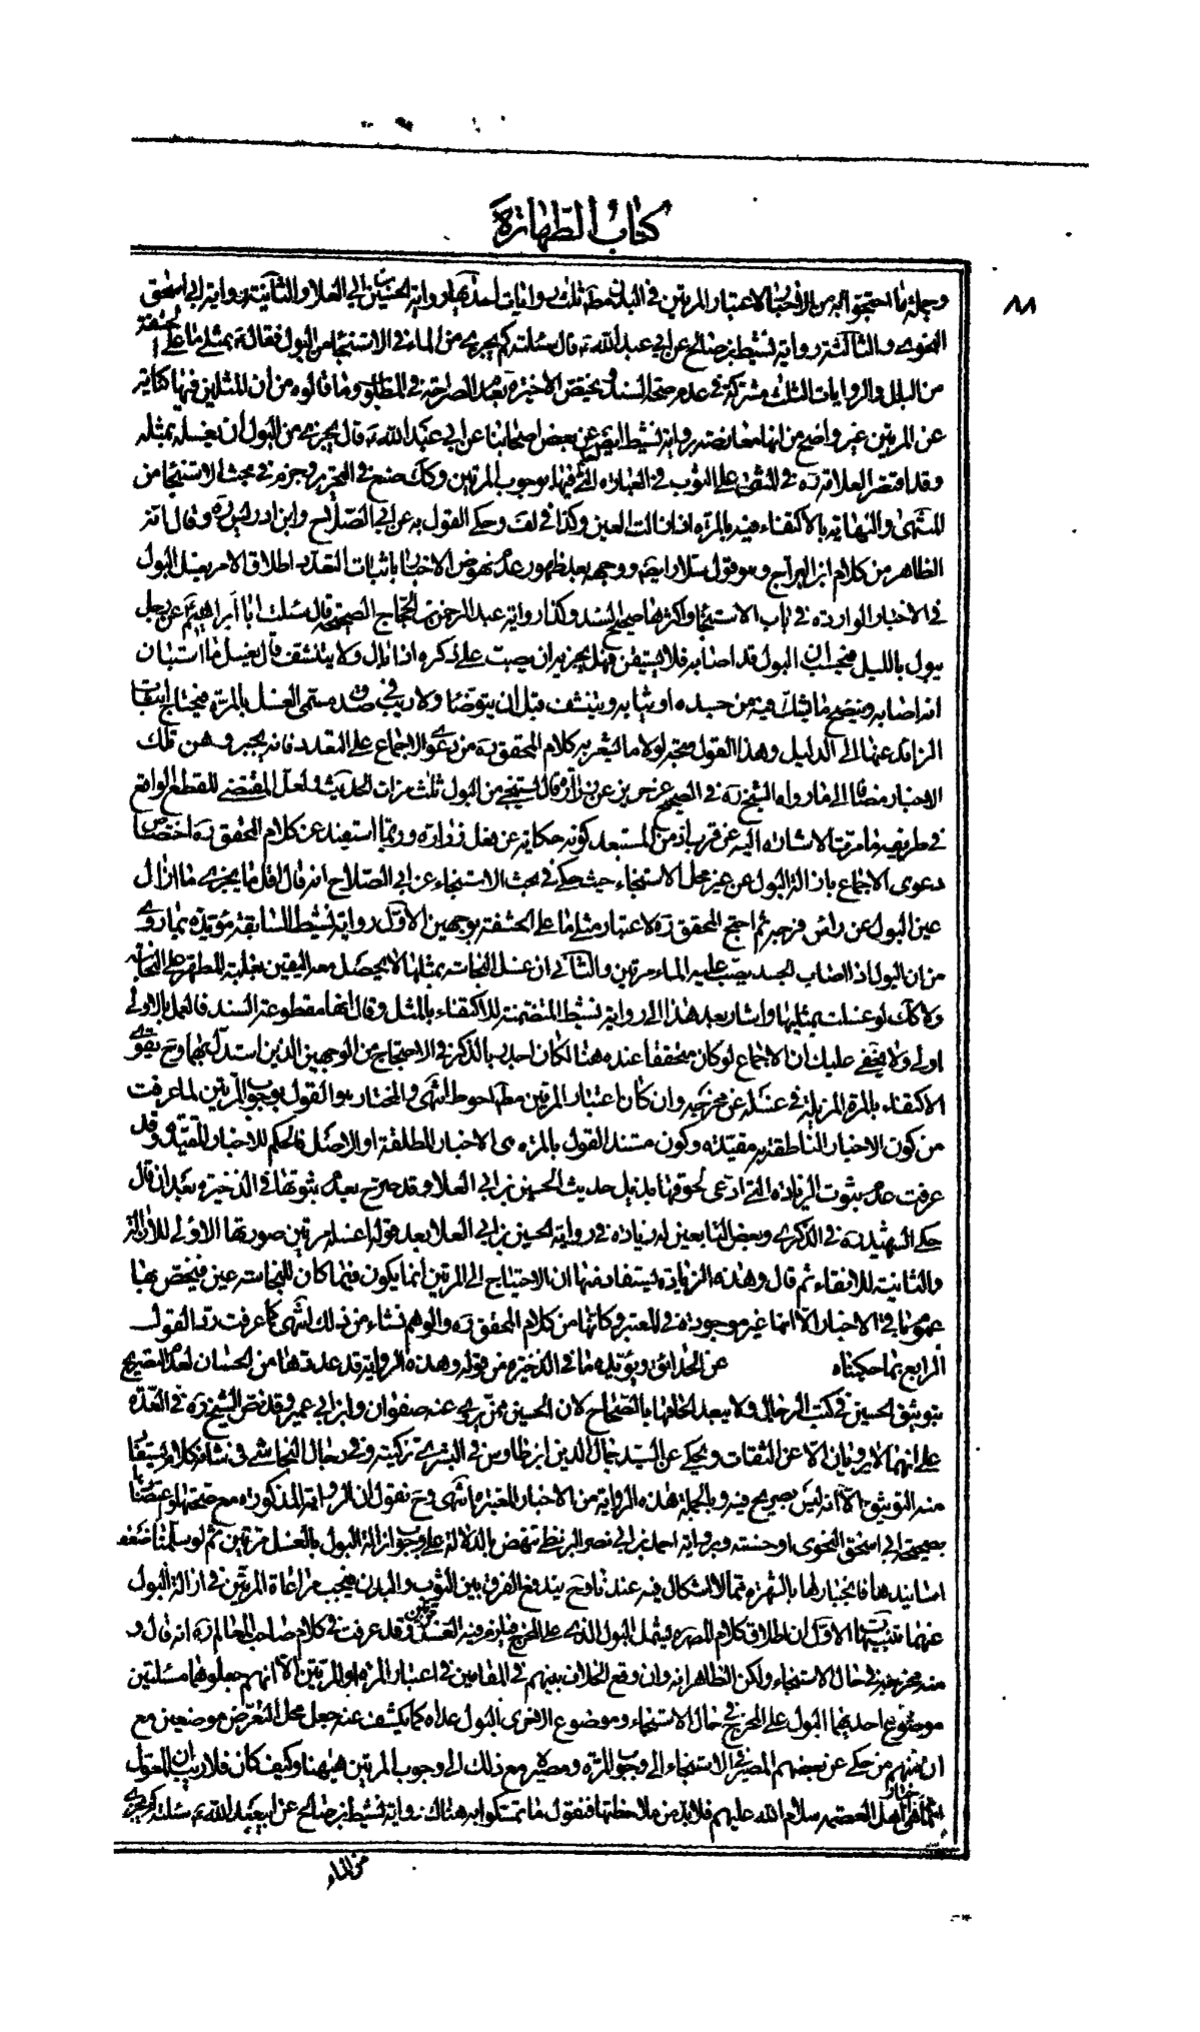 كتاب الطهارة
٨٨
وجملة ما احتجوا به من الأخبار لاعتبار المرتين في البدن مط ثلث روايات احديها رواية الحسين بن ابي العلا والثانية رواية ابي اسحق
النحوي والثالثة رواية نشيط بن صالح عن ابي عبد الله ع قال سئلته كم يجزي من الماء في الاستنجاء من البول فقال ع بمثلي ما على الحشفة
من البلل والروايات الثلث مشتركة في عدم صحة السند وتختص الاخيرة بعدم الصراحة في المطلوب وما قالوه من ان للمثلين فيها كناية
عن المرتين غير واضح من انها معارضة برواية نشيط ايضا عن بعض اصحابنا عن ابي عبد الله ع قال يجزي من البول ان يغسله بمثله
وقد اقتصر العلامة ره في المنتهى على الثوب في العبارة التي فيها بوجوب المرتين وكك صنع في التحرير وجزم في مبحث الاستنجاء من
المنتهى والنهاية بالاكتفاء فيه بالمرة اذا زالت العين وكذا في لف وحكى القول به عن ابي الصلاح وابن ادريس ره وقال انه
الظاهر من كلام ابن البراج وهو قول سلار ايضا ووجهه بعد ظهور عدم نهوض الاخبار باثبات التعدد اطلاق الامر بغسل البول
في الاخبار الواردة في باب الاستنجاء واكثرها صحيح السند وكذا رواية عبد الرحمن بن الحجاج الصحيحة قال سئلت ابا ابراهيم ع عن رجل
يبول بالليل فيحسب ان البول قد اصابه فلا يستيقن فهل يجزيه ان يصب على ذكره اذا بال ولا يتنشف قال يغسل ما استبان
انه اصابه وينضح ما يشك فيه من جسده او ثيابه ويتنشف قبل ان يتوضأ ولا ريب في صدق مسمى الغسل بالمرة فيحتاج اثبات
الزائد عنها الى الدليل وهذا القول متجه لولا ما يشعر به كلام المحقق ره من دعوى الاجماع على التعدد فانه يجبر وهن تلك
الاخبار مضافا الى ما رواه الشيخ ره في الصحيح عن حريز عن زرارة قال يستنجي من البول ثلث مرات الحديث ولعل المقتضي للقطع الواقع
في طريقه ما مرت الاشارة اليه عن قرب اذ من المستبعد كونه حكاية عن فعل زرارة وربما استفيد من كلام المحقق ره اختصاص
دعوى الاجماع بازالة البول عن غير محل الاستنجاء حيث حكى في بحث الاستنجاء عن ابي الصلاح انه قال اقل ما يجزي ما ازال
عين البول عن رأس فرجه ثم احتج المحقق ره لاعتبار مثلي ما على الحشفة بوجهين الاول رواية نشيط السابقة مؤيدة بما روي
من ان البول اذا اصاب الجسد يصب عليه الماء مرتين والثاني ان غسل النجاسة بمثلها لا يحصل معه اليقين بغلبة المطهر على النجاسة
ولا كك لو غسلت بمثليها واشار بعد هذا الى رواية نشيط المتضمنة للاكتفاء بالمثل وقال انها مقطوعة السند فالعمل بالاولى
اولى ولا يخفى عليك ان الاجماع لو كان متحققا عنده هنا لكان احق بالذكر في الاحتجاج من الوجهين الذين استدل بهما وح يقوى
الاكتفاء بالمرة المزيلة في غسله عن مخرجه وان كان اعتبار المرتين مط احوط انتهى والمختار هو القول بوجوب المرتين لما عرفت
من كون الاخبار الناطقة به مقيدة وكون مستند القول بالمرة هي الاخبار المطلقة او الاصل فالحكم للاخبار المقيدة وقد
عرفت عدم ثبوت الزيادة التي ادعى لحوقها بذيل حديث الحسين بن ابي العلا وقد صرح بعدم ثبوتها في الذخيرة بعد ان قال
حكى الشهيد ره في الذكرى وبعض التابعين له زيادة في رواية الحسين بن ابي العلا بعد قوله اغسله مرتين صورتها الاولى للازالة
والثانية للانقاء ثم قال وهذه الزيادة يستفاد منها ان الاحتياج الى المرتين انما يكون فيما كان للنجاسة عين فيخص بها
عموما في الاخبار الا انها غير موجودة في المعتبر وكانها من كلام المحقق ره والوهم نشاء من ذلك انتهى كما عرفت رد القول
الرابع بما حكيناه عن الحدائق ويؤيده ما في الذخيرة من قوله وهذه الرواية قد عددتها من الحسان لعدم التصريح
بتوثيق الحسين في كتب الرجال ولا يبعد الحاقها بالصحاح لان الحسين ممن يروي عنه صفوان وابن ابي عمير وقد نص الشيخ ره في العدة
على انهما لا يرويان الا عن الثقات ويحكى عن السيد جمال الدين ابن طاوس في البشرى تزكيته وفي رجال النجاشي في شانه كلام يستفاد
منه التوثيق الا انه ليس بصريح فيه وبالجملة هذه الرواية من الاخبار المعتبرة انتهى وح نقول ان الرواية المذكورة مع صحتها واعتضادها
بصحيحة ابي اسحق النحوي او حسنته وبرواية احمد بن ابي نصر البزنطي تنهض بالدلالة على وجوب ازالة البول بالغسل مرتين ثم لو سلمنا ضعف
اسانيدها فانجبارها بالشهرة مما لا اشكال فيه عندنا وح يندفع الفرق بين الثوب والبدن فيجب مراعاة المرتين في ازالة البول
عنهما تنبيهات الاول ان اطلاق كلام المص ره يشمل البول الذي على المخرج فيلزم فيه الغسل مرتين وقد عرفت في كلام صاحب المعالم ره انه قال و
منه مخرجه في حال الاستنجاء ولكن الظاهر انه وان وقع الخلاف بينهم في المقامين في اعتبار المرة او المرتين الا انهم جعلوهما مسئلتين
موضوع احديهما البول على المخرج في حال الاستنجاء وموضوع الاخرى البول عداه كما يكشف عنه جعل محل التعرض موضعين مع
ان منهم من حكى عن بعضهم المصير في الاستنجاء الى وجوب المرة ومصيره مع ذلك الى وجوب المرتين هيهنا وكيف كان فلا ريب ان المعول
انما هي اخبار اهل العصمة سلام الله عليهم فلا بد من ملاحظتها فنقول ما تمسكوا به هناك رواية نشيط بن صالح عن ابي عبد الله ع سئلته كم يجزي
من الماء